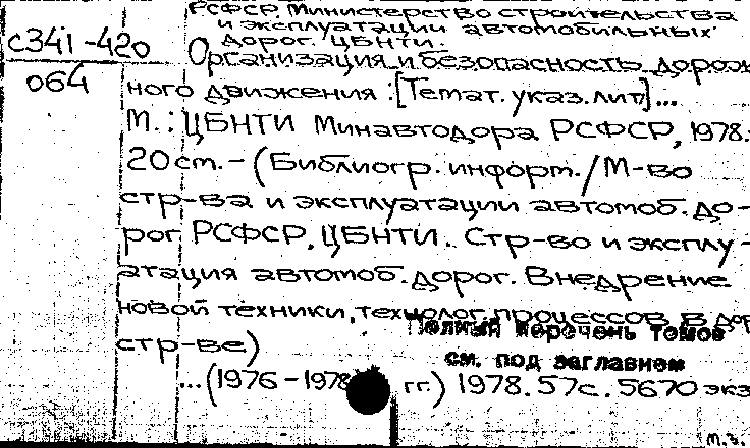 РСФСР. Министерство строительства
и эксплуатации автомобильных
дорог. ЦБНТИ.
с341-420
064
Организация и безопасность дорож
ного движения : [Темат. указ. лит]...
М. : ЦБНТИ Минавтодора РСФСР, 1978.
20 см. - (Библиогр. информ. / М-во
стр-ва и эксплуатации автомоб. до-
рог РСФСР, ЦБНТИ. Стр-во и эксплу-
атация автомоб. дорог. Внедрение
новой техники, технолог. процессов в дор
стр-ве)
Полный перечень томов
см. под заглавием
...(1976 - 1978 гг.) 1978. 57 с. 5670 экз
м.з.